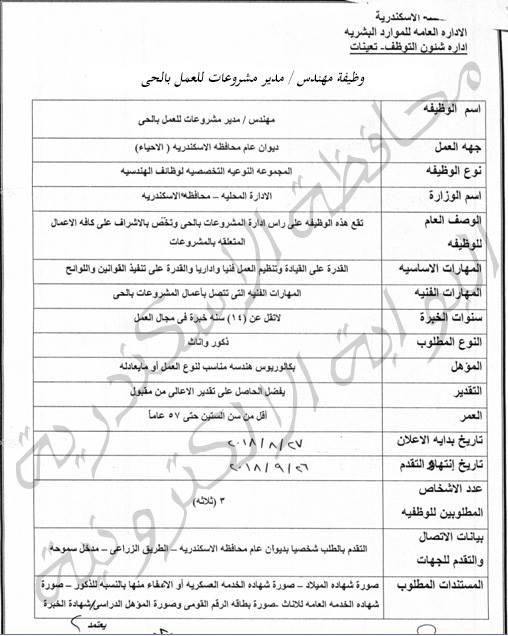 الاسكندرية
الاداره العامه للموارد البشريه
اداره شئون التوظف- تعينات
وظيفة مهندس / مدير مشروعات للعمل بالحى
اسم الوظيفه
مهندس / مدير مشروعات للعمل بالحى
جهه العمل
ديوان عام محافظه الاسكندريه ( الاحياء)
نوع الوظيفه
المجموعه النوعيه التخصصيه لوظائف الهندسيه
اسم الوزارة
الادارة المحليه – محافظه الاسكندريه
الوصف العام
للوظيفه
تقع هذه الوظيفه على راس ادارة المشروعات بالحى وتختص بالاشراف على كافه الاعمال
المتعلقه بالمشروعات
المهارات الاساسيه
القدرة على القيادة وتنظيم العمل فنيا واداريا والقدرة على تنفيذ القوانين واللوائح
المهارات الفنيه
المهارات الفنيه التى تتصل بأعمال المشروعات بالحى
سنوات الخبرة
لاتقل عن (١٤) سنه خبرة فى مجال العمل
النوع المطلوب
ذكور واناث
المؤهل
بكالوريوس هندسه مناسب لنوع العمل أو مايعادله
التقدير
يفضل الحاصل على تقدير الاعالى من مقبول
العمر
أقل من سن الستين حتى ٥٧ عاماً
تاريخ بدايه الاعلان
٢٠١٨/٨/٢٧
تاريخ إنتهاء التقدم
٢٠١٨/٩/٢٦
عدد الاشخاص
المطلوبين للوظفيه
٣ (ثلاثه)
بيانات الاتصال
والتقدم للجهات
التقدم بالطلب شخصيا بديوان عام محافظه الاسكندريه – الطريق الزراعى – مدخل سموحه
المستندات المطلوب
صورة شهاده الميلاد – صورة شهاده الخدمه العسكريه أو الاعفاء منها بالنسبه للذكور – صورة
شهاده الخدمه العامه للاناث -صورة بطاقه الرقم القومى وصورة المؤهل الدراسى/شهادة الخبرة
يعتمد
محافظة الاسكندرية
البوابة الالكترونية